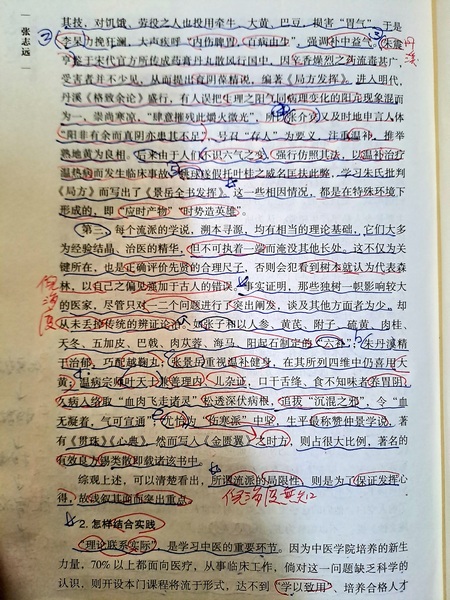 张志远
基技，对饥饿、劳役之人也投用牵牛、大黄、巴豆，损害“胃气”，于是
李杲力挽狂澜，大声疾呼“内伤脾胃，百病由生”，强调补中益气。朱震
亨鉴于宋代官方所传成药膏丹丸散风行国中，因辛香燥烈之药流毒甚广，
受害者并不少见，从而提出育阴葆精说，编著《局方发挥》。进入明代，
丹溪《格致余论》盛行，有人误把生理之阳气同病理变化的阳亢现象混而
为一，崇尚寒凉，“肆意摧残此爝火微光”，所以张介宾又及时地申言人体
“阳非有余而真阴亦患其不足”，号召“存人”为要义，注重温补，推举
熟地黄为良相。后来由于人们不识六气之变，强行仿照其法，以温补治疗
温热病而发生临床事故，
《局方》而写出了《景岳全书发挥》。这一些相因情况，都是在特殊环境下
形成的，即“应时产物”“时势造英雄”。
第三，每个流派的学说，溯本寻源，均有相当的理论基础，它们大多
为经验结晶、治医的精华，但不可执着一端而淹没其他长处。这不仅为关
键所在，也是正确评价先贤的合理尺子，否则会犯看到树木就认为代表森
林，以自己之偏见强加于古人的错误。事实证明，那些独树一帜影响较大
的医家，尽管只对一二个问题进行了突出阐发，谈及其他方面者为少，却
从未丢掉传统的辨证论治，如张子和以人参、黄芪、附子、硫黄、肉桂、
天冬、五加皮、巴戟、肉苁蓉、海马、阳起石制定的“六补”；朱丹溪精
于治郁，巧配越鞠丸；张景岳重视温补健身，在其所列四维中仍喜用大
黄；温病宗师叶天士兼善理内、儿杂证，口干舌绛、食不知味者养胃阴，
久病入络取“血肉飞走诸灵”松透深伏病根，追拔“沉混之邪”，令“血
无凝着，气可宣通”；尤怡为“伤寒派”中坚，生平最称赞仲景学说，著
有《贯珠》《心典》，然而写人《金匮翼》之时方，则占很大比例，著名的
有效良方锡类散即载诸该书中。
综观上述，可以清楚看出，所谓流派的局限性，则是为了保证发挥心
得，故线叙其面而突出重点。
2. 怎样结合实践
“理论联系实际”，是学习中医的重要环节。因为中医学院培养的新生
力量，70% 以上都面向医疗，从事临床工作，倘对这一问题缺乏科学的
认识，则开设本门课程将流于形式，达不到“学以致用”、培养合格人才